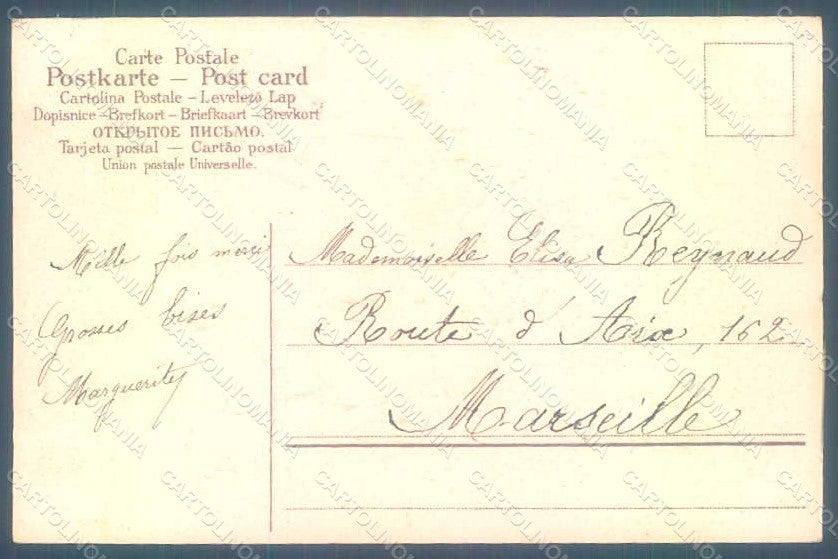 Carte Postale
Postkarte — Post card
Cartolina Postale – Levelező Lap
Dopisnice – Brefkort – Briefkaart – Brevkort
ОТКРЫТОЕ ПИСЬМО.
Tarjeta postal — Cartão postal
Union postale Universelle.
Mille fois merci
Grosses bises
Marguerite
Mademoiselle Elisa Reynaud
Route d'Aix, 162
Marseille
CARTOLINOMANIA